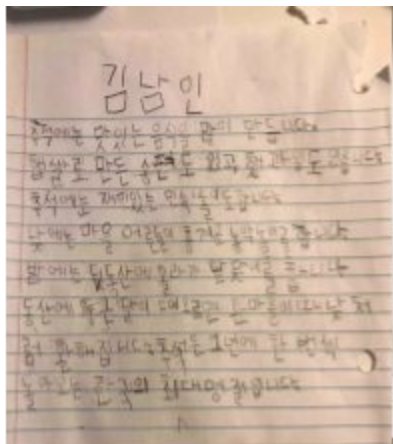 김남인
추석에는 맛있는 음식을 많이 만듭니다.
햅쌀로 만든 송편도
추석에는 재미있는 민속놀이도 합니다
낮에는 마을 어른들이 흥겨운 농악놀이를 합니다
밤에는 뒷동산에 올라가 달맞이를 합니다
동산에 둥근 달이 떠오르면 온 마을이 대낮 처
럼 환해집니다 추석은 1년에 한 번씩
돌아오는 한국의 최대명절입니다